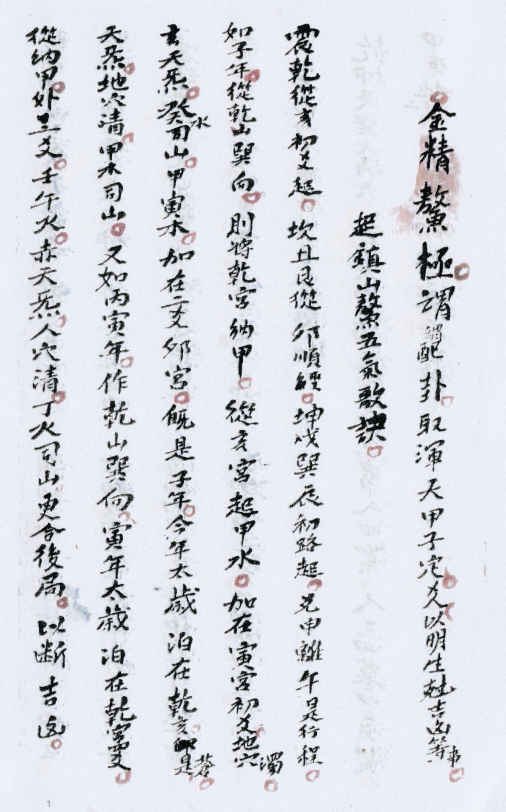 金精鰲極謂配卦取渾天甲子定爻以明生尅吉凶等事
起鎮山鰲五氣歌訣
震乾從亥初爻起坎丑艮從卯順經坤戌巽辰初路起兌申離午是行程
如子年從乾山巽向則將乾宮納甲從亥宮起甲水加在寅宮初爻地穴濁
玄天炁癸水司山甲寅木加在二爻卯宮既是子年今年太歲泊在乾亥是
天炁地穴清甲木司山又如丙寅年作乾山巽向寅年太歲泊在乾宮
從納甲外三爻壬午火赤天炁人穴清丁火司山更合後局以斷吉凶